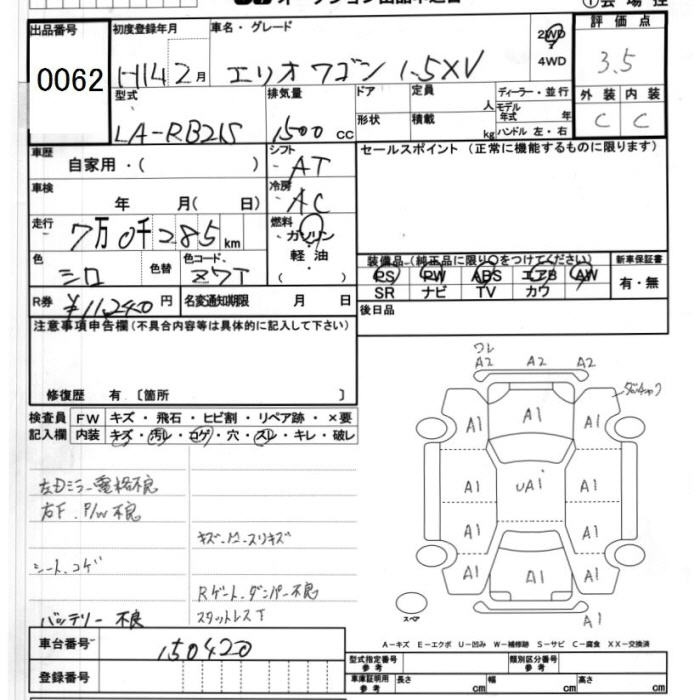 出品番号 初度登録年月 車名・グレード 評価点
0062 H14 2月 エリオ ワゴン 1.5XV 2WD 4WD 3.5
型式 排気量 ドア 定員 人 ディーラー・並行 外装 内装
LA-RB21S 1500cc 形状 積載 kg モデル年式 年 ハンドル 左・右 C C
車歴 自家用・( ) シフト AT セールスポイント (正常に機能するものに限ります)
車検 年 月( 日) 冷房 AC
走行 7万0千285km 燃料 ガソリン 軽油 ( )
色 シロ 色替 色コード. Z7T 装備品 (純正品に限り○をつけてください) 新車保証書
PS PW ABS エアB AW 有・無
SR ナビ TV カワ
R券 ¥11,240円 名変通知期限 月 日 後日品
注意事項申告欄(不具合内容等は具体的に記入して下さい)
修復歴 有 〔箇所 〕
検査員記入欄 FW キズ・飛石・ヒビ割・リペア跡・×要
内装 キズ・汚レ・コゲ・穴・スレ・キレ・破レ
ワレ
A2 A2 A2
A1 A1 A1
A1 UA1 A1
A1 A1
A1 A1 A1
A1
スペア
左Dミラー電格不良
右F.P/W不良
キズ・凹・スリキズ
シート.コゲ
Rゲート.ダンパー不良
バッテリー 不良 スタットレスT
A-キズ E-エクボ U-凹み W-補修跡 S-サビ C-腐食 XX-交換済
車台番号 150420
型式指定番号 参考 類別区分番号 参考
登録番号 車庫証明用 参考 長さ cm 幅 cm 高さ cm